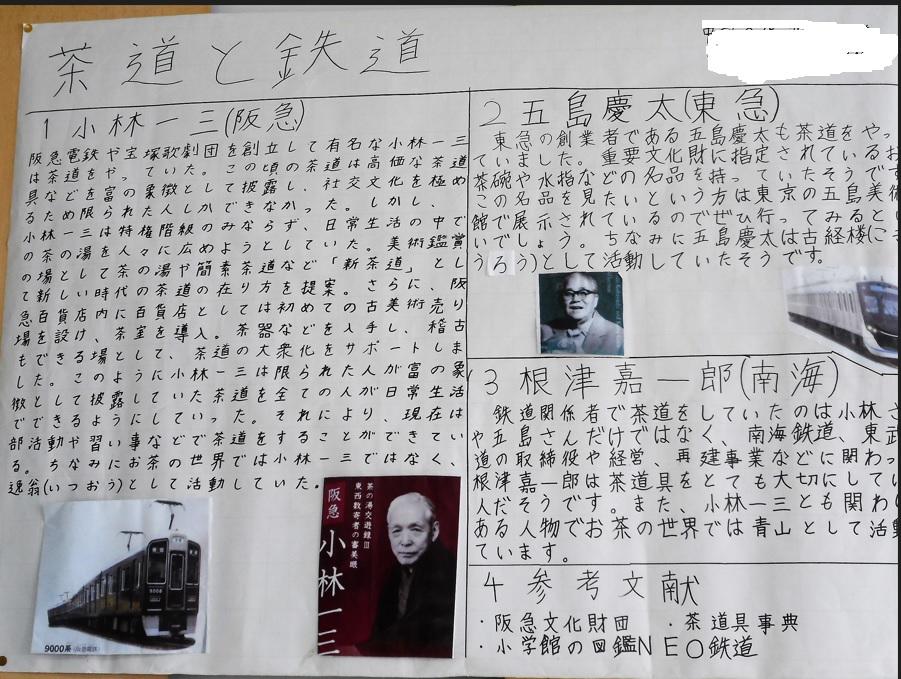 茶道と鉄道
1 小林一三(阪急)
阪急電鉄や宝塚歌劇団を創立して有名な小林一三
は茶道をやっていた。この頃の茶道は高価な茶道
具などを富の象徴として披露し、社交文化を極め
るため限られた人しかできなかった。しかし、
小林一三は特権階級のみならず、日常生活の中で
の茶の湯を人々に広めようとしていた。美術鑑賞
の場として茶の湯や簡素茶道など「新茶道」とし
て新しい時代の茶道の在り方を提案。さらに、阪
急百貨店内に百貨店としては初めての古美術売り
場を設け、茶室を導入。茶器などを入手し、稽古
もできる場として、茶道の大衆化をサポートしま
した。このように小林一三は限られた人が富の象
徴として披露していた茶道を全ての人が日常生活
でできるようにしていった。それにより、現在は
部活動や習い事などで茶道をすることができてい
る。ちなみにお茶の世界では小林一三ではなく、
逸翁(いつおう)として活動していた。
9000系(阪急電鉄)
茶の湯交遊録Ⅲ
東西数寄者の審美眼
阪急
小林一三
2 五島慶太(東急)
東急の創業者である五島慶太も茶道をやっ
ていました。重要文化財に指定されているお
茶碗や水指などの名品を持っていたそうです
この名品を見たいという方は東京の五島美術
館で展示されているのでぜひ行ってみると
いでしょう。ちなみに五島慶太は古経楼(こ
うろう)として活動していたそうです。
3 根津嘉一郎(南海)
鉄道関係者で茶道をしていたのは小林さ
や五島さんだけではなく、南海鉄道、東武
道の取締役や経営 再建事業などに関わっ
根津嘉一郎は茶道具をとても大切にしてい
人だそうです。また、小林一三とも関わ
ある人物でお茶の世界では青山として活動
ています。
4 参考文献
・阪急文化財団 ・茶道具事典
・小学館の図鑑NEO鉄道